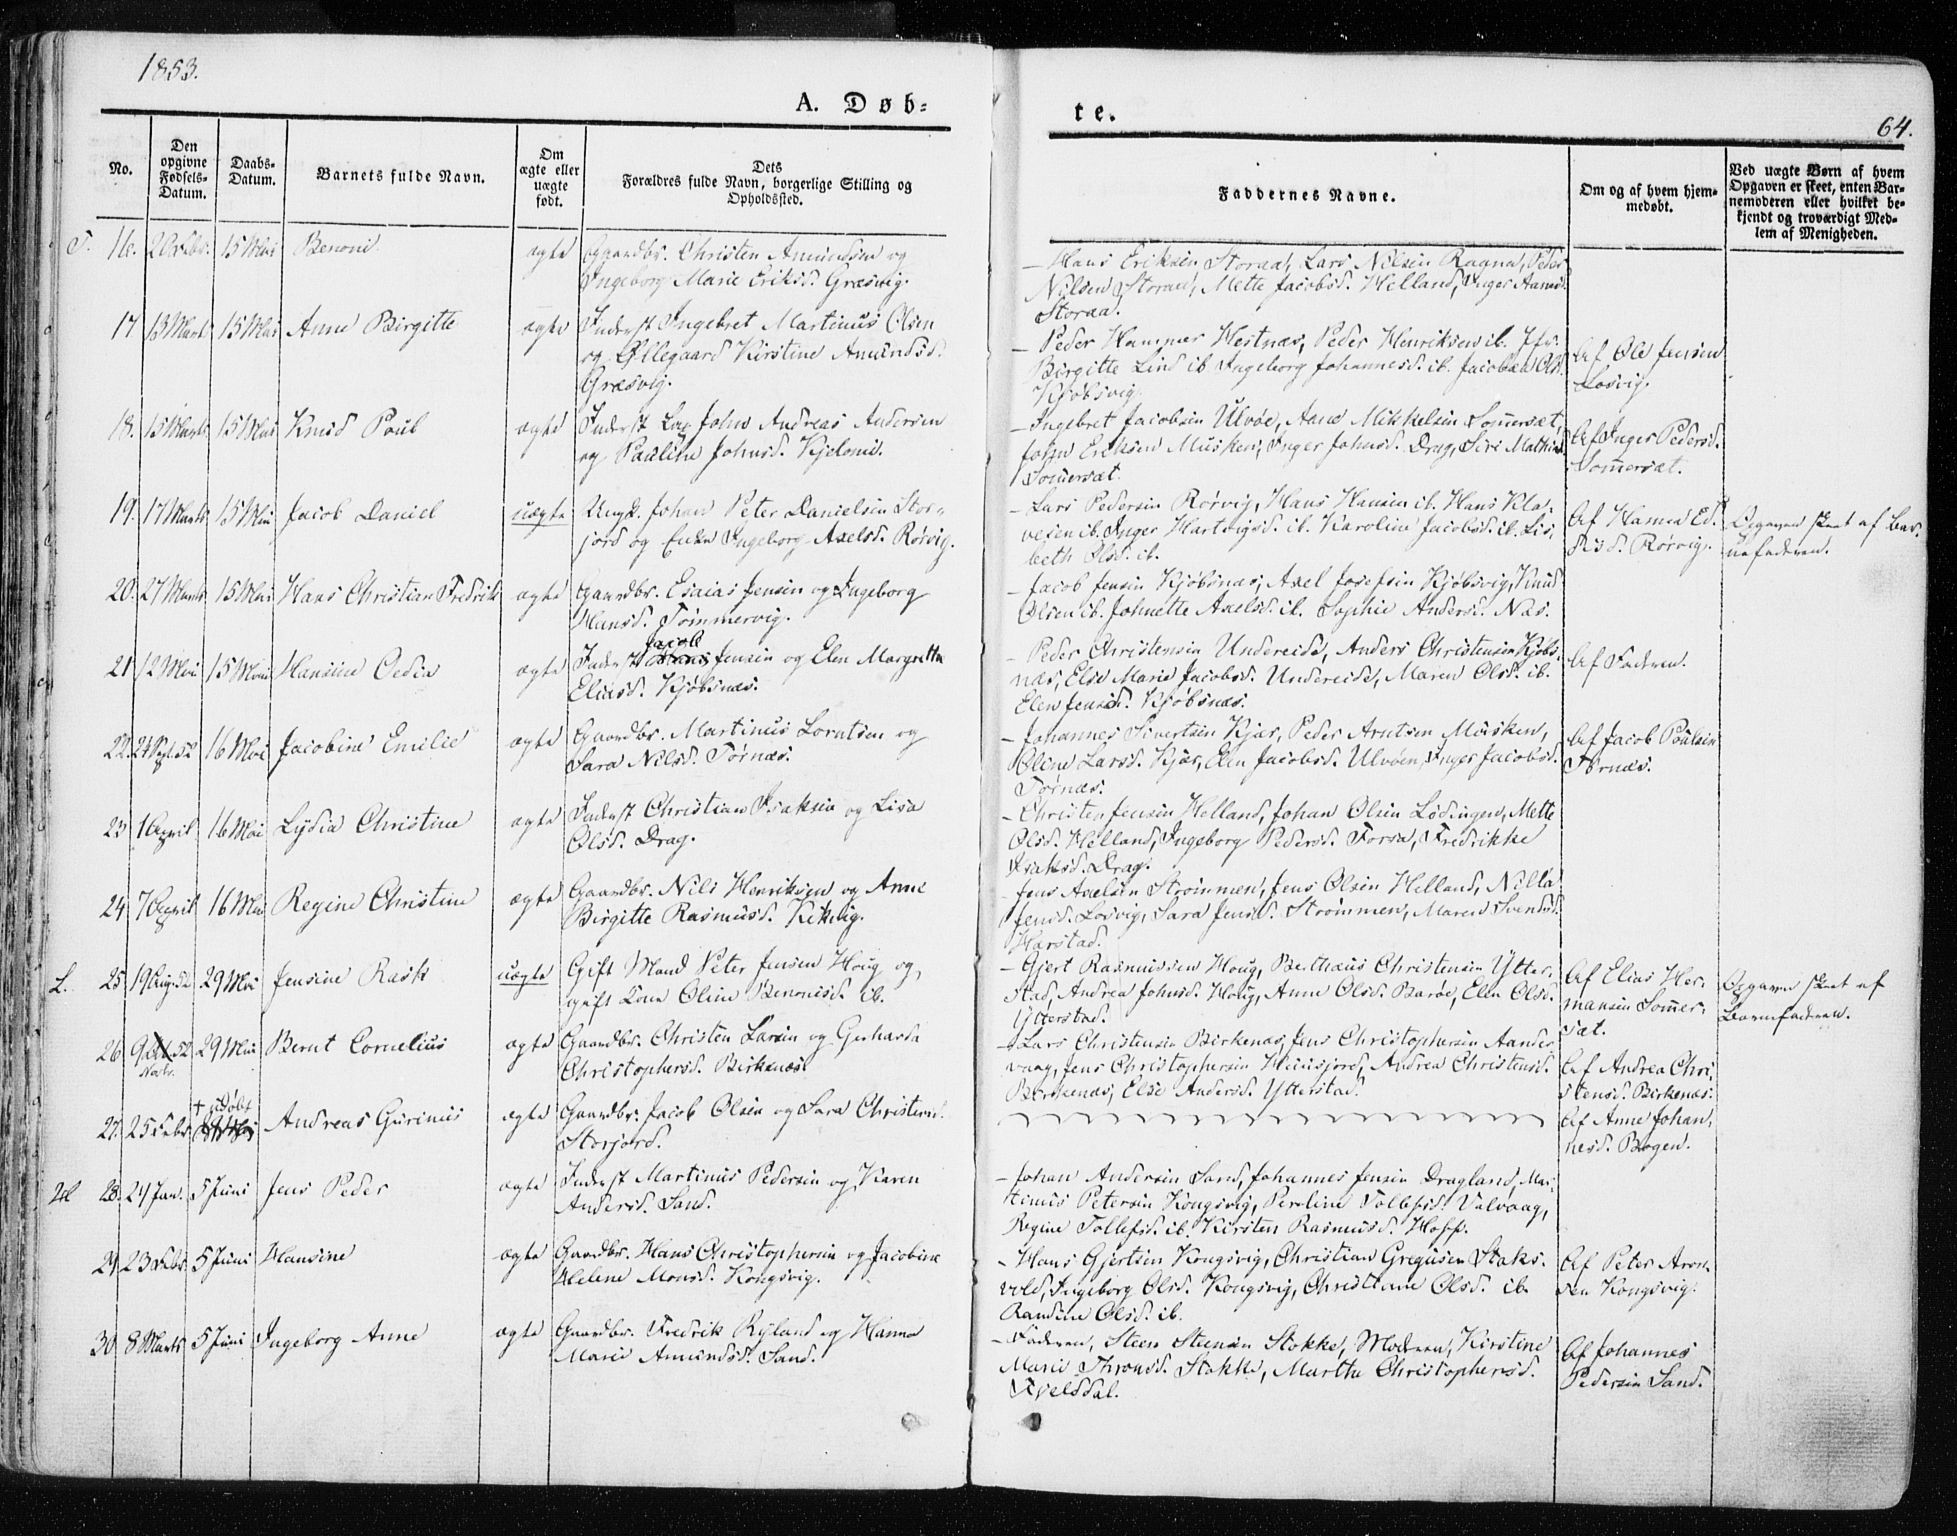 1853.
A. Døb=
te.
64.
No.
Den opgivne Fødsels-Datum.
Daabs-Datum.
Barnets fulde Navn.
Om ægte eller uægte født.
Dets
Forældres fulde Navn, borgerlige Stilling og
Opholdssted.
Faddernes Navne.
Om og af hvem hjem-
medøbt.
Ved uægte Børn af hvem
Opgaven er skeet, enten Bar-
nemoderen eller hvilket be-
kjendt og troværdigt Med-
lem af Menigheden.
T. 16. 15 Mai Benoni ægte Gaardbr. Christen Amundsen og
Ingeborg Marie Eriksd. Græsvig.
- Hans Eriksen Storaa, Lars Nilsen Ragna, Peder
Nilsen Storaa, Mette Jacobsd. Helland, Inger
Storaa.
17. 13 Marts 15 Mai Anne Birgitte ægte Inderst Ingebret Martinus Olsen
og Øllegaard Kirstine Amundsd.
Græsvig.
- Peder Hammer Hestnæs, Peder Henriksen ib. Jfr.
Birgitte Lind ib. Ingeborg Johannesd. ib. Jacobæa Olsd.
Kjøbsvig.
Af Ole Jensen
Losvig.
18. 15 Marts 15 Mai Knud Poul ægte Inderst Lap John Andreas Andersen
og Pauline Johnsd. Kjelkni.
- Ingebret Jacobsen Ulvøe, Aane Mikkelsen Sommersæt,
John Eriksen Musken, Inger Johnsd. Drag, Siri Mathisd.
Sommersæt.
Af Inger Pedersd.
Sommersæt.
19. 17 Marts 15 Mai Jacob Daniel uægte Ungk. Johan Peter Danielsen Stor-
jord og Enke Ingeborg Axelsd. Rørvig.
- Lars Pedersen Rørvig, Hans Hansen ib. Hans Kla-
vesen ib. Inger Hartvigsd. ib. Karoline Jacobsd. ib. Lis-
beth Olsd. ib.
Af Hanna
Rørvig.
Opgaven skeet af Bar-
nefaderen.
20. 27 Marts 15 Mai Hans Christian Fredrik ægte Gaardbr. Esaias Jensen og Ingeborg
Hansd. Tømmervig.
- Jacob Jensen Kjøbsnæs, Axel Josefsen Kjøbsvig, Knud
Olsen ib. Johnette Axelsd. ib. Sophie Andersd. Næs.
21. 12 Mai 15 Mai Hansine Oedia ægte Inderst Jacob Jensen og Elen Margrethe
Eliasd. Kjøbsnæs.
- Peder Christensen Undereide, Anders Christensen Kjøbs-
næs, Else Marie Jacobsd. Undereide, Maren Olsd. ib.
Elen Jensd. Kjøbsnæs.
Af Faderen.
22. 24 Sept. 52 16 Mai Jacobine Emilie ægte Gaardbr. Martinus Lorntsen og
Sara Nilsd. Tørnæs.
- Johannes Sivertsen Kjær, Peder Arntsen Musken,
Oline Larsd. Kjær, Elen Jacobsd. Ulvøen, Inger Jacobsd.
Tørnæs.
Af Jacob Poulsen
Tørnæs.
23 1 April 16 Mai Lydia Christine ægte Inderst Christian Isaksen og Lisa
Olsd. Drag.
- Christen Jensen Helland, Johan Olsen Lødingen, Mette
Olsd. Helland, Ingeborg Pedersd. Forsa, Fredrikke
Isaksd. Drag.
24 7 April 16 Mai Regine Christine ægte Gaardbr. Nils Henriksen og Anne
Birgitte Rasmusd. Kikvig.
- Jens Axelsen Strømmen, Jens Olsen Helland, Nilla
Jensd. Losvig, Sara Jensd. Strømmen, Maren Svendsd.
Harstad.
L. 25 19 Aug. 52 29 Mai Jensine Rask uægte Gift Mand Peter Jensen Houg og
gift Kone Oline Benonisd. ib.
- Gjert Rasmussen Houg, Berthæus Christensen Ytter-
stad, Andrea Johnsd. Houg, Anne Olsd. Barøe, Elen Olsd.
Ytterstad.
Af Elias Her-
mansen Sommer-
sæt.
Opgaven skeet af
Barnefaderen.
26 9 Novbr. 52 29 Mai Bernt Cornelius ægte Gaardbr. Christen Larsen og Gerharda
Christophersd. Birkenæs.
- Lars Christensen Birkenæs, Jens Christophersen Aander-
vaag, Jens Christophersen Heinsjord, Andrea Christensd.
Birkenæs, Else Andersd. Ytterstad.
Af Andrea Chri-
stensd. Birkenæs.
27. 25 Febr. + udøbt Andreas Gurinius ægte Gaardbr. Jacob Olsen og Sara Christensd.
Storjord.
Af Anne Johan-
nesd. Bogen.
28. 24 Jan. 5 Juni Jens Peder ægte Inderst Martinus Pedersen og Karen
Andersd. Sand.
- Johan Andersen Sand, Johannes Jensen Dragland, Mar-
tinus Petersen Kongsvig, Peroline Tollefsd. Valvaag,
Regine Tollefsd. ib. Kirsten Rasmusd. Hoff.
29 23 Febr. 5 Juni Hansine ægte Gaardbr. Hans Christophersen og Jacobine
Helene Monsd. Kongsvig.
- Hans Gjertsen Kongsvig, Christian Gregusen Staks-
vold, Ingeborg Olsd. Kongsvig, Christiane Olsd. ib.
Randine Olsd. ib.
Af Peter Aron-
sen Kongsvig.
30 8 Marts 5 Juni Ingeborg Anne ægte Gaardbr. Fredrik Ryland og Hanna
Marie Amundsd. Sand.
- Faderen, Steen Steensen Stokke, Moderen, Kirstine
Marie Thronsd. Stokke, Marthe Christophersd.
Fjelddal.
Af Johannes
Pedersen Sand.